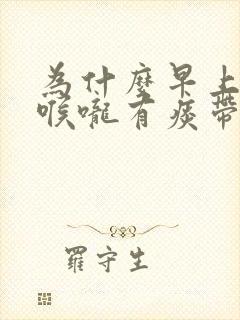 為什麼早上
喉嚨有痰帶
羅守生